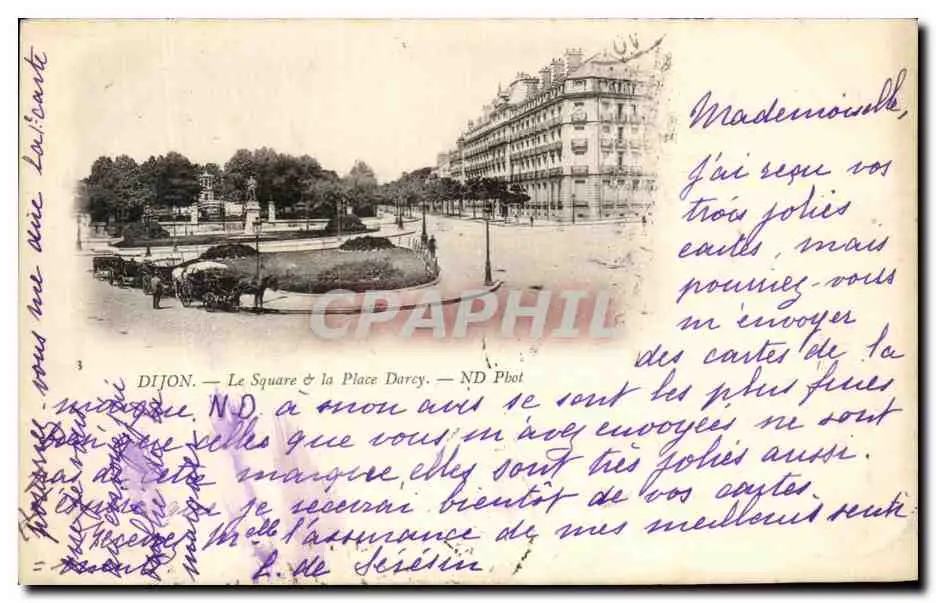 Mademoiselle,
J'ai reçu vos
trois jolies
cartes, mais
pourriez-vous
m'envoyer
des cartes de la
marque N.D. à mon avis se sont les plus fines
bien que celles que vous m'avez envoyées ne sont
pas de cette marque, elles sont très jolies aussi.
J'espère que je recevrai bientôt de vos cartes.
Recevez Melle l'assurance de mes meilleurs senti
= ments
L. de Sérésin
pourriez-vous me dire la carte
CPAPHIL
3
DIJON. — Le Square & la Place Darcy. — ND Phot